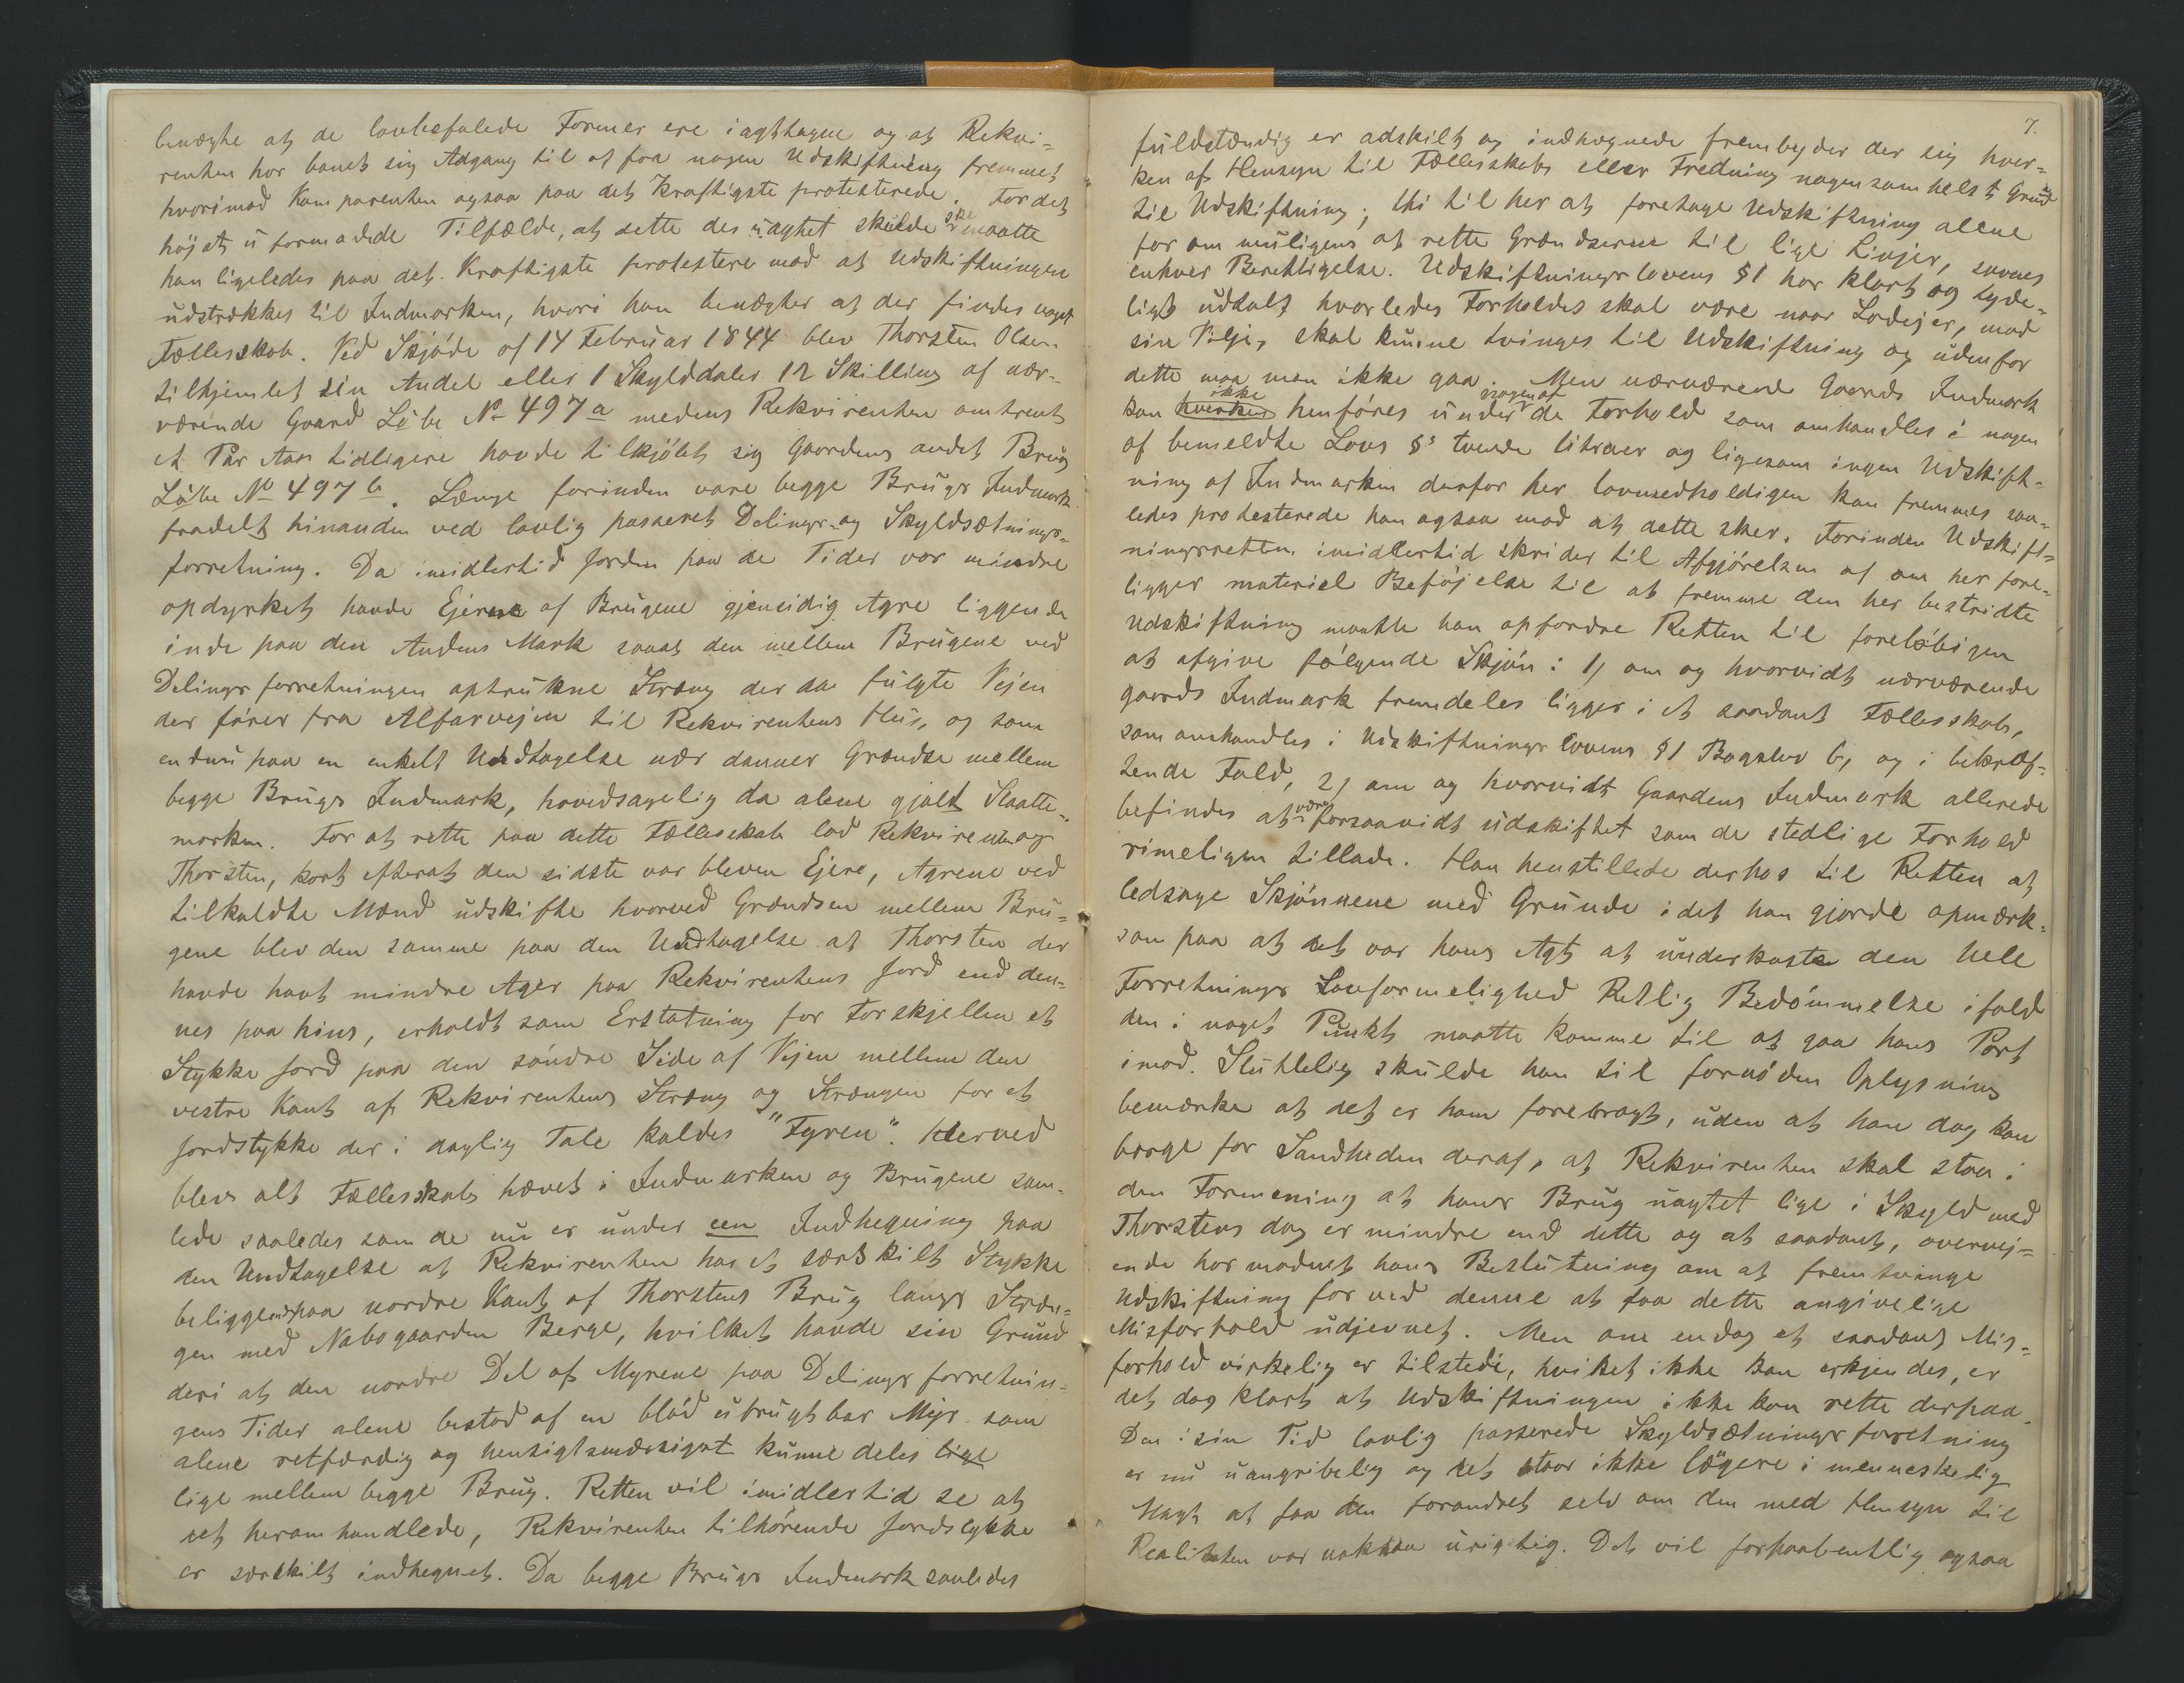 benægte at de lovbefalede Former ere iagttagne og at Rekvi-
renten har banet sig Adgang til at faa nogen Udskiftning fremmet
hvorimod Komparenten ogsaa paa det Kraftigste protesterede. For det
højst uformodede Tilfælde, at dette desuagtet skulde ske maatte
han ligeledes paa det Kraftigste protestere mod at Udskiftningen
udstrækkes til Indmarken, hvori han benægter at der findes noget
Fællesskab. Ved Skjøde af 14 Februar 1844 blev Thorsten Olsen
tilhjemlet sin Andel eller 1 Skylddaler 12 Skilling af nær-
værende Gaard Løbe No 497a medens Rekvirenten omtrent
et Par Aar tidligere havde tilkjøbt sig Gaardens andet Brug
Løbe No 497b. Længe forinden vare begge Brugs Indmark
fradelt hinanden ved lovlig passeret Delings- og Skyldsætnings-
forretning. Da imidlertid Jorden paa de Tider var mindre
opdyrket havde Ejerne af Brugene gjensidig Agre liggende
inde paa den Andens Mark saaat den mellem Brugene ved
Delingsforretningen optrukne Stræng der da fulgte Vejen
der fører fra Alfarvejen til Rekvirentens Hus, og som
endnu paa en enkelt Undtagelse nær danner Grændse mellem
begge Brugs Indmark, hovedsagelig da alene gjaldt Slaatte-
marken. For at rette paa dette Fællesskab lod Rekvirenten og
Thorsten, kort efterat den sidste var bleven Ejere, Agrene ved
tilkaldte Mænd udskifte hvorved Grændsen mellem Bru-
gene blev den samme paa den Undtagelse at Thorsten der
havde havt mindre Ager paa Rekvirentens Jord end den-
nes paa hins, erholdt som Erstatning for Forskjellen et
Stykke Jord paa den søndre Side af Vejen mellem den
vestre Kant af Rekvirentens Stræng og Strængen for et
Jordstykke der i daglig Tale kaldes "Fyren". Herved
blev alt Fællesskab hævet i Indmarken og Brugene sam-
lede saaledes som de nu er under een Indhegning paa
den Undtagelse at Rekvirenten har et særskilt Stykke
beliggende paa nordre Kant af Thorstens Brug langs Stræn-
gen med Nabogaarden Berge, hvilket havde sin Grund
deri at den nordre Del af Myrene paa Delingsforretnin-
gens Tider alene bestod af en blød ufrugtbar Myr som
alene retfærdig og hensigtsmæssigst kunne deles lige
lige mellem begge Brug. Retten vil imidlertid se at
det heromhandlede, Rekvirenten tilhørende Jordstykke
er særskilt indhegnet. Da begge Brugs Indmark saaledes
7.
fuldstændig er adskilt og indhegnede frembyder der sig hver-
ken af Hensyn til Fællesskab eller Fredning nogensomhelst Grund
til Udskiftning; thi til her at foretage Udskiftning alene
for om muligens at rette Grændserne til lige Linjer, savnes
enhver Berettigelse. Udskiftningslovens §1 har klart og tyde-
ligt udtalt hvorledes Forholdet skal være naar Lodejer, mod
sin Vilje, skal kunne tvinges til Udskiftning og udenfor
dette maa man ikke gaa. Men nærværende Gaards Indmark
kan hverken ikke henføres under nogen af de Forhold som omhandles i nogen
af bemeldte Lovs §s tvende litraer og ligesom ingen Udskift-
ning af Indmarken derfor her lovmedholdigen kan fremmes saa-
ledes protesterede han ogsaa mod at dette sker. Forinden Udskift-
ningsretten imidlertid skrider til Afgjørelsen af om her fore-
ligger materiel Beføjelse til at fremme den her bestridte
Udskiftning maatte han opfordre Retten til foreløbigen
at afgive følgende Skjøn: 1) om og hvorvidt nærværende
gaards Indmark fremdeles ligger i et saadant Fællesskab,
som omhandles i Udskiftningslovens §1 Bogstav b, og i bekræf-
tende Fald, 2) om og hvorvidt Gaardens Indmark allerede
befindes at være forsaavidt udskiftet som de stedlige Forhold
rimeligen tillade. Han henstillede derhos til Retten at
ledsage Skjønnene med Grunde idet han gjorde opmærk-
som paa at det var hans Agt at underkaste den hele
Forretnings Lovformelighed Retlig Bedømmelse ifald
den i noget Punkt maatte komme til at gaa hans Part
imod. Sluttelig skulde han til fornøden Oplysning
bemærke at det er ham forebragt, uden at han dog kan
borge for Sandheden deraf, at Rekvirenten skal staa i
den Formening at hans Brug uagtet lige i Skyld med
Thorstens dog er mindre end dette og at saadant, overvej-
ende har modnet hans Beslutning om at fremtvinge
Udskiftning for ved denne at faa dette angivelige
Misforhold udjevnet. Men om endog et saadant Mis-
forhold virkelig er tilstede, hvilket ikke kan erkjendes, er
det dog klart at Udskiftningen ikke kan rette derpaa.
Den i sin Tid lovlig passerede Skyldsætningsforretning
er nu uangribelig og det staar ikke lægere i menneskelig
Magt at faa den forandret selv om den med Hensyn til
Realiteten var noksaa urigtig. Det vil forhaabentlig ogsaa